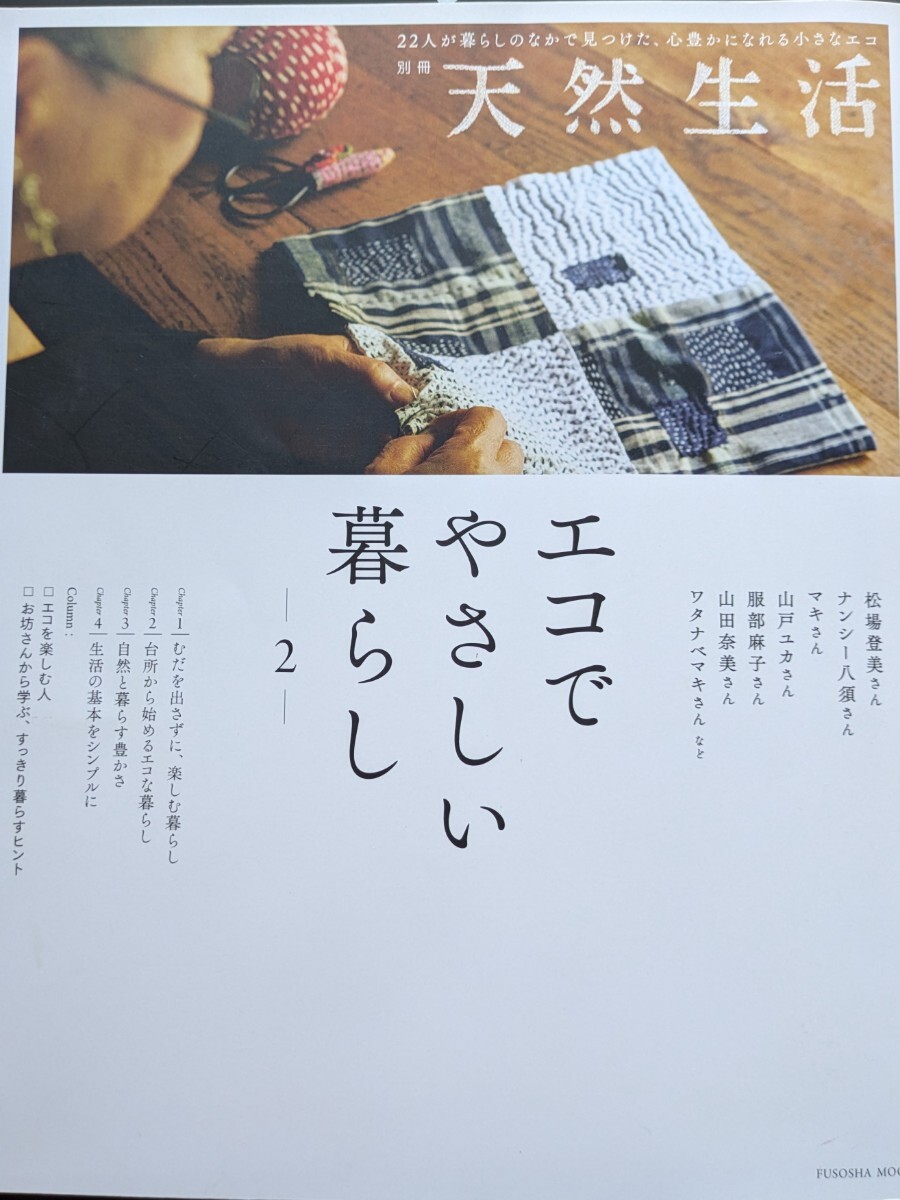 22人が暮らしのなかで見つけた、心豊かになれる小さなエコ
別冊
天然生活
エコで
やさしい
暮らし
2
松場登美さん
ナンシー八須さん
マキさん
山戸ユカさん
服部麻子さん
山田奈美さん
ワタナベマキさん など
Chapter 1 むだを出さずに、楽しむ暮らし
Chapter 2 台所から始めるエコな暮らし
Chapter 3 自然と暮らす豊かさ
Chapter 4 生活の基本をシンプルに
Column:
□ エコを楽しむ人
□ お坊さんから学ぶ、すっきり暮らすヒント
FUSOSHA MOO